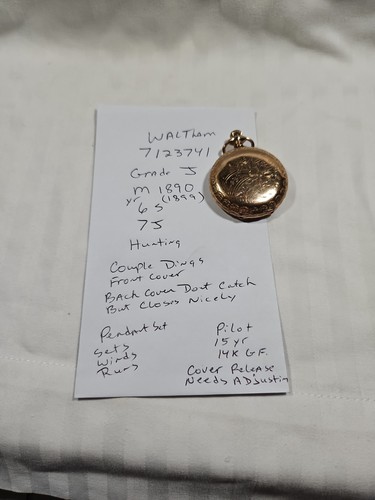 WALTham
7123741
Grade J
M 1890
yr (1899)
6 S
7J
Hunting
Couple Dings
Front Cover
BAck Cover Dont Catch
But Closes Nicely
Pendant Set
Sets
Winds
Runs
Pilot
15 yr
14K G.F.
Cover Release
Needs ADjustin